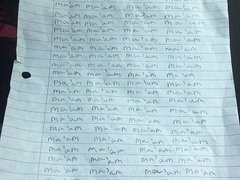 ma'am ma'am ma'am ma'am
ma'am ma'am ma'am ma'am
ma'am ma'am ma'am ma'am
ma'am ma'am ma'am ma'am
ma'am ma'am ma'am ma'am
ma'am ma'am ma'am ma'am
ma'am ma'am ma'am ma'am
ma'am ma'am ma'am ma'am
ma'am ma'am ma'am ma'am
ma'am ma'am ma'am ma'am
ma'am ma'am ma'am ma'am
ma'am ma'am ma'am ma'am
ma'am ma'am ma'am ma'am
ma'am ma'am ma'am ma'am
ma'am ma'am ma'am ma'am
ma'am ma'am ma'am ma'am